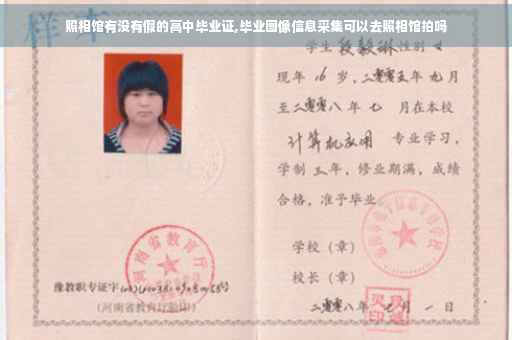 照相馆有没有假的高中毕业证,毕业图像信息采集可以去照相馆拍吗
样本
学生 段毅琳 性别 女
现年 16 岁,二零零五年 九 月
至二零零八年 七 月在本校
计算机应用 专业学习,
学制 三 年,修业期满,成绩
合格,准予毕业
学校(章)
校长(章)
二零零八年 月 一 日
河南省教育厅
豫教职专证字
(河南省教育厅监印)